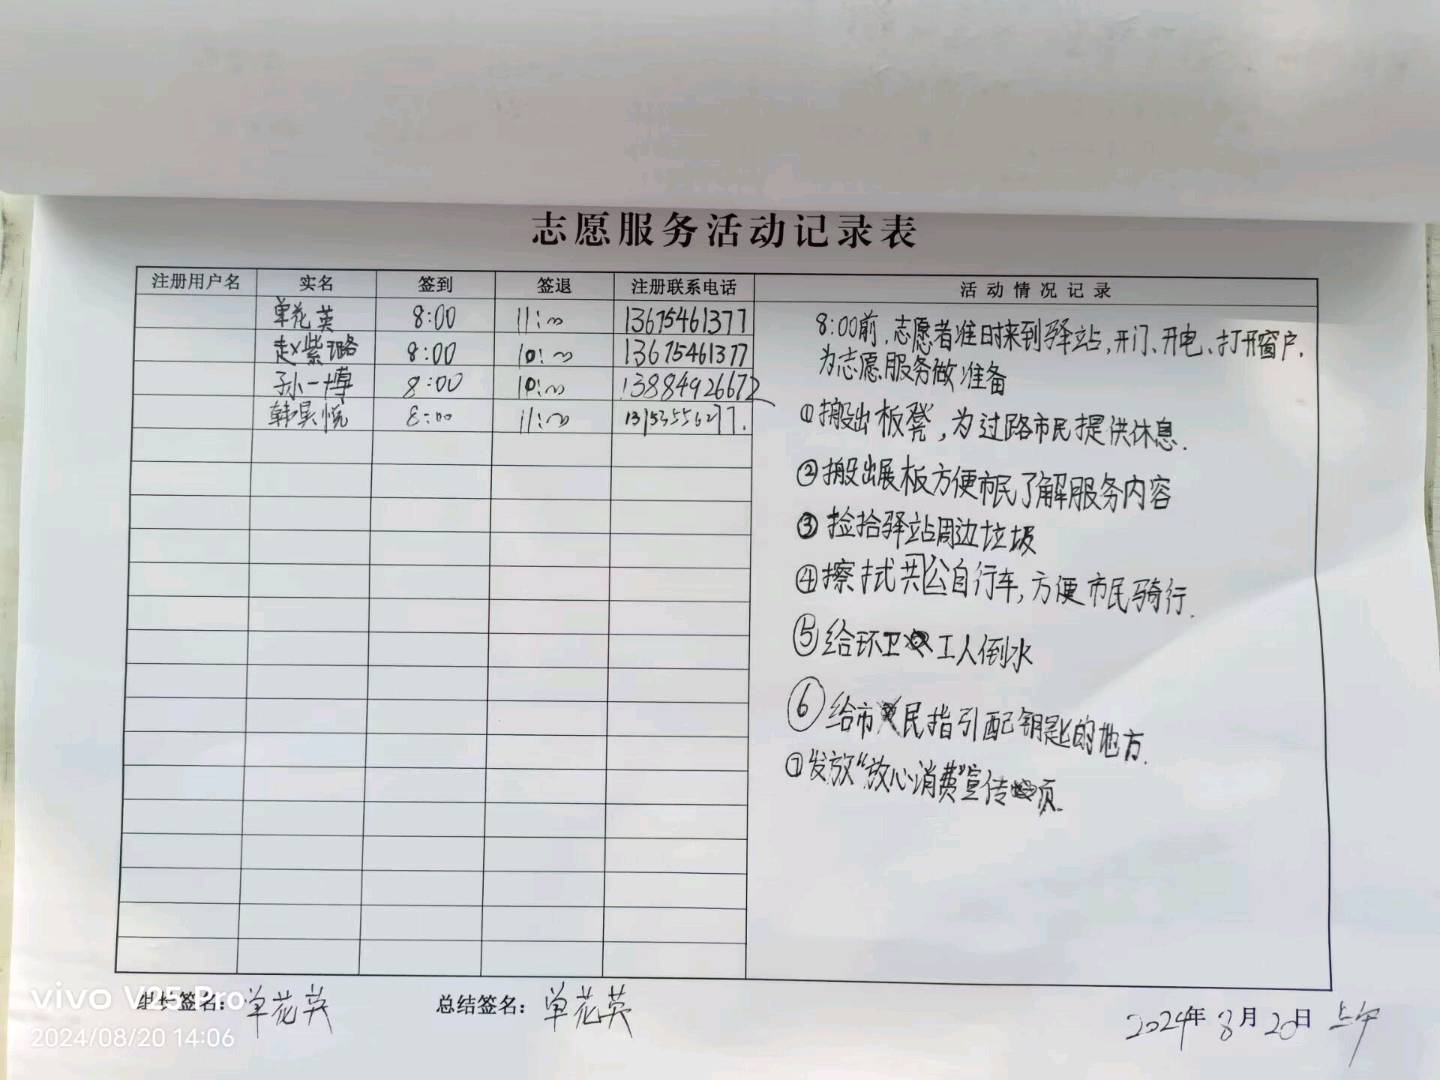 志愿服务活动记录表
注册用户名 实名 签到 签退 注册联系电话 活动情况记录
单花英 8:00 11:00 13675461377
赵紫璐 8:00 10:00 13675461377
孙一博 8:00 10:00 13884926672
韩昊悦 8:00 11:00 13153556277.
8:00前,志愿者准时来到驿站,开门、开电、打开窗户,
为志愿服务做准备
①搬出板凳,为过路市民提供休息.
②搬出展板方便市民了解服务内容
③捡拾驿站周边垃圾
④擦拭公共自行车,方便市民骑行.
⑤给环卫工人倒水
⑥给市民指引配钥匙的地方.
⑦发放“放心消费”宣传页.
组长签名:单花英 总结签名:单花英 2024年8月20日 上午
vivo V25 Pro
2024/08/20 14:06